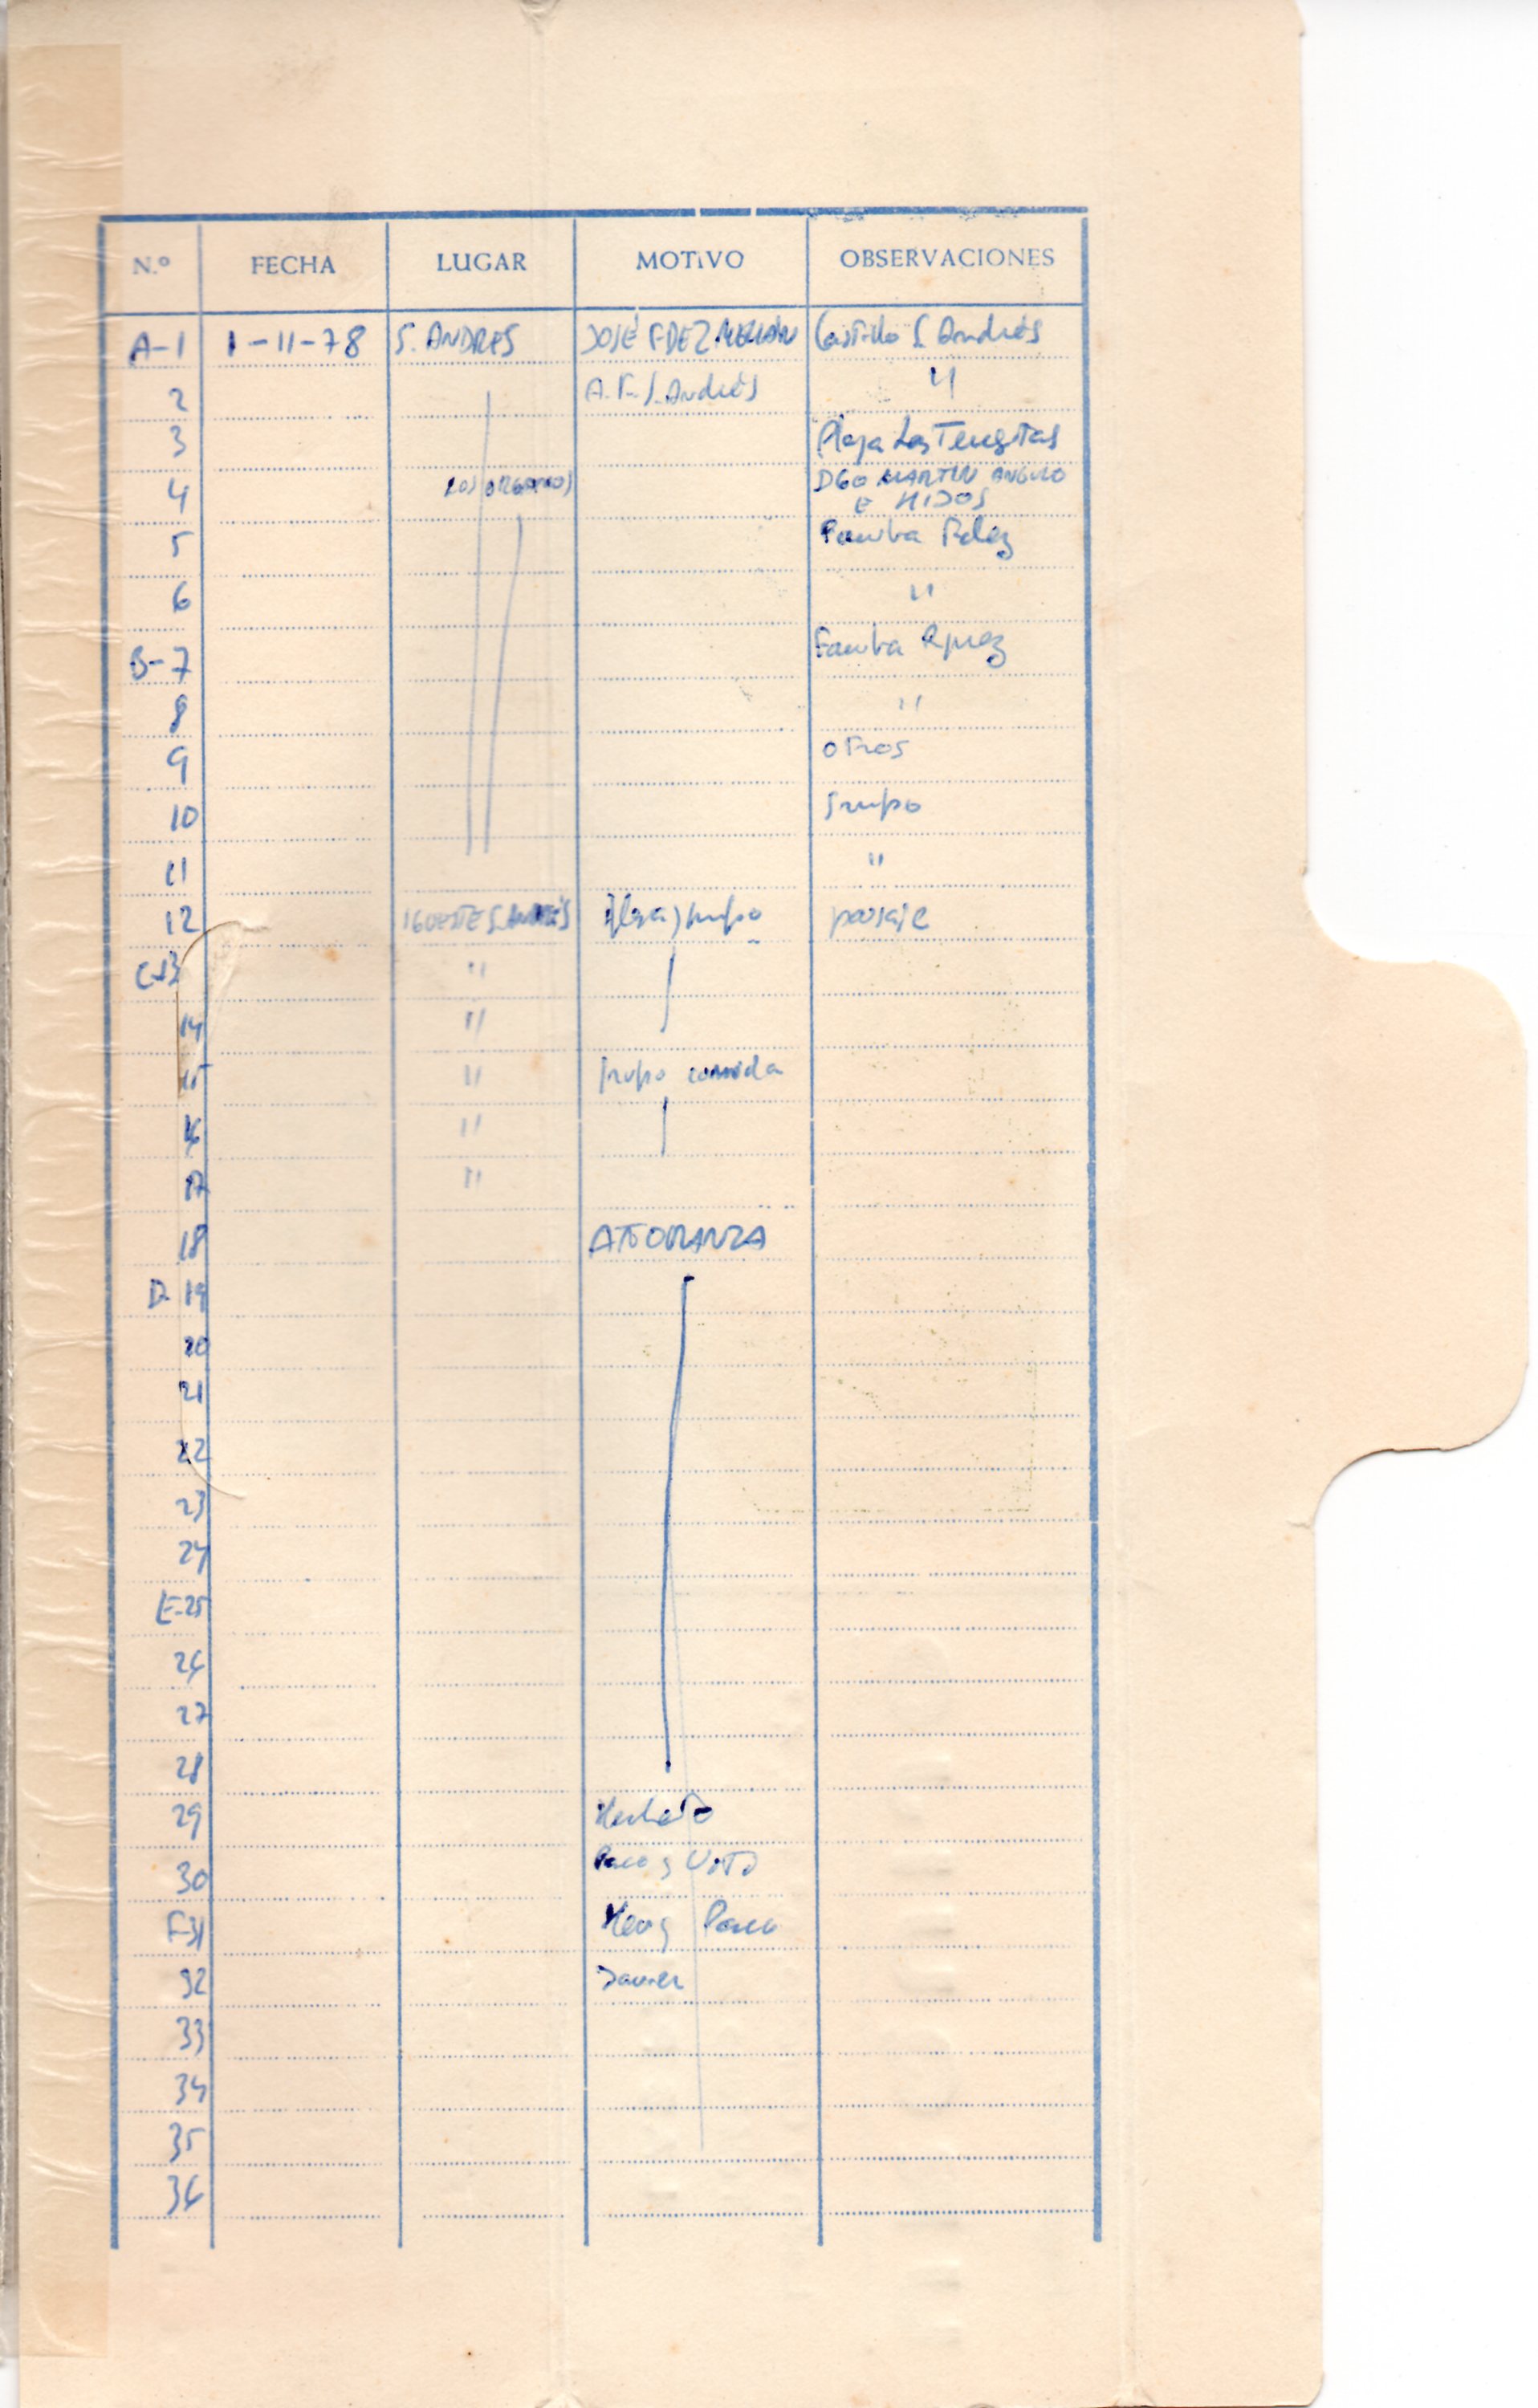 N.º FECHA LUGAR MOTIVO OBSERVACIONES
A-1 1-11-78 S. ANDRES JOSÉ FDEZ MELIÁN Castillo S. Andrés
2 A.F. S. Andrés "
3 Playa Las Teresitas
4 LOS ORGANOS DGO MARTIN ANGULO
E HIJOS
5 Fdez
6 "
B-7 Rguez
8 "
9 otros
10 grupo
11 "
12 IGUESTE S. ANDRÉS grupo paisaje
C-13 "
14 "
15 " grupo comida
16 "
17 "
18 AÑORANZA
D-19
20
21
22
23
24
E-25
26
27
28
29
30 Paco y
F-31 Paco
32 Javier
33
34
35
36